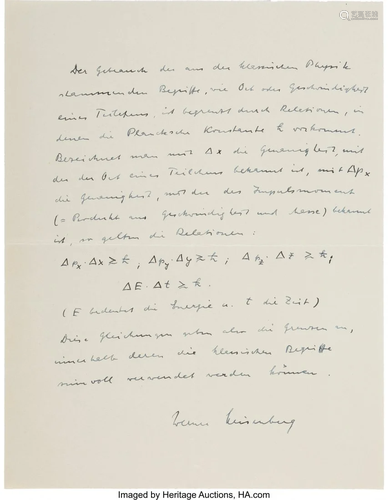 Der Gebrauch der aus der klassischen Physik
stammenden Begriffe, wie Ort oder Geschwindigkeit
eines Teilchens, ist begrenzt durch Relationen, in
denen die Plancksche Konstante ℏ vorkommt.
Bezeichnet man mit Δx die Genauigkeit, mit
der der Ort eines Teilchens bekannt ist, mit Δpₓ
die Genauigkeit, mit der das Impulsmoment
(= Produkt aus Geschwindigkeit und Masse) bekannt
ist, so gelten die Relationen:
Δpₓ·Δx ≥ ℏ ; Δp_y·Δy ≥ ℏ ; Δp_z·Δz ≥ ℏ ;
ΔE·Δt ≥ ℏ.
(E bedeutet die Energie u. t die Zeit)
Diese Gleichungen geben also die Grenzen an,
innerhalb deren die klassischen Begriffe
sinnvoll verwendet werden können.
Werner Heisenberg
Imaged by Heritage Auctions, HA.com